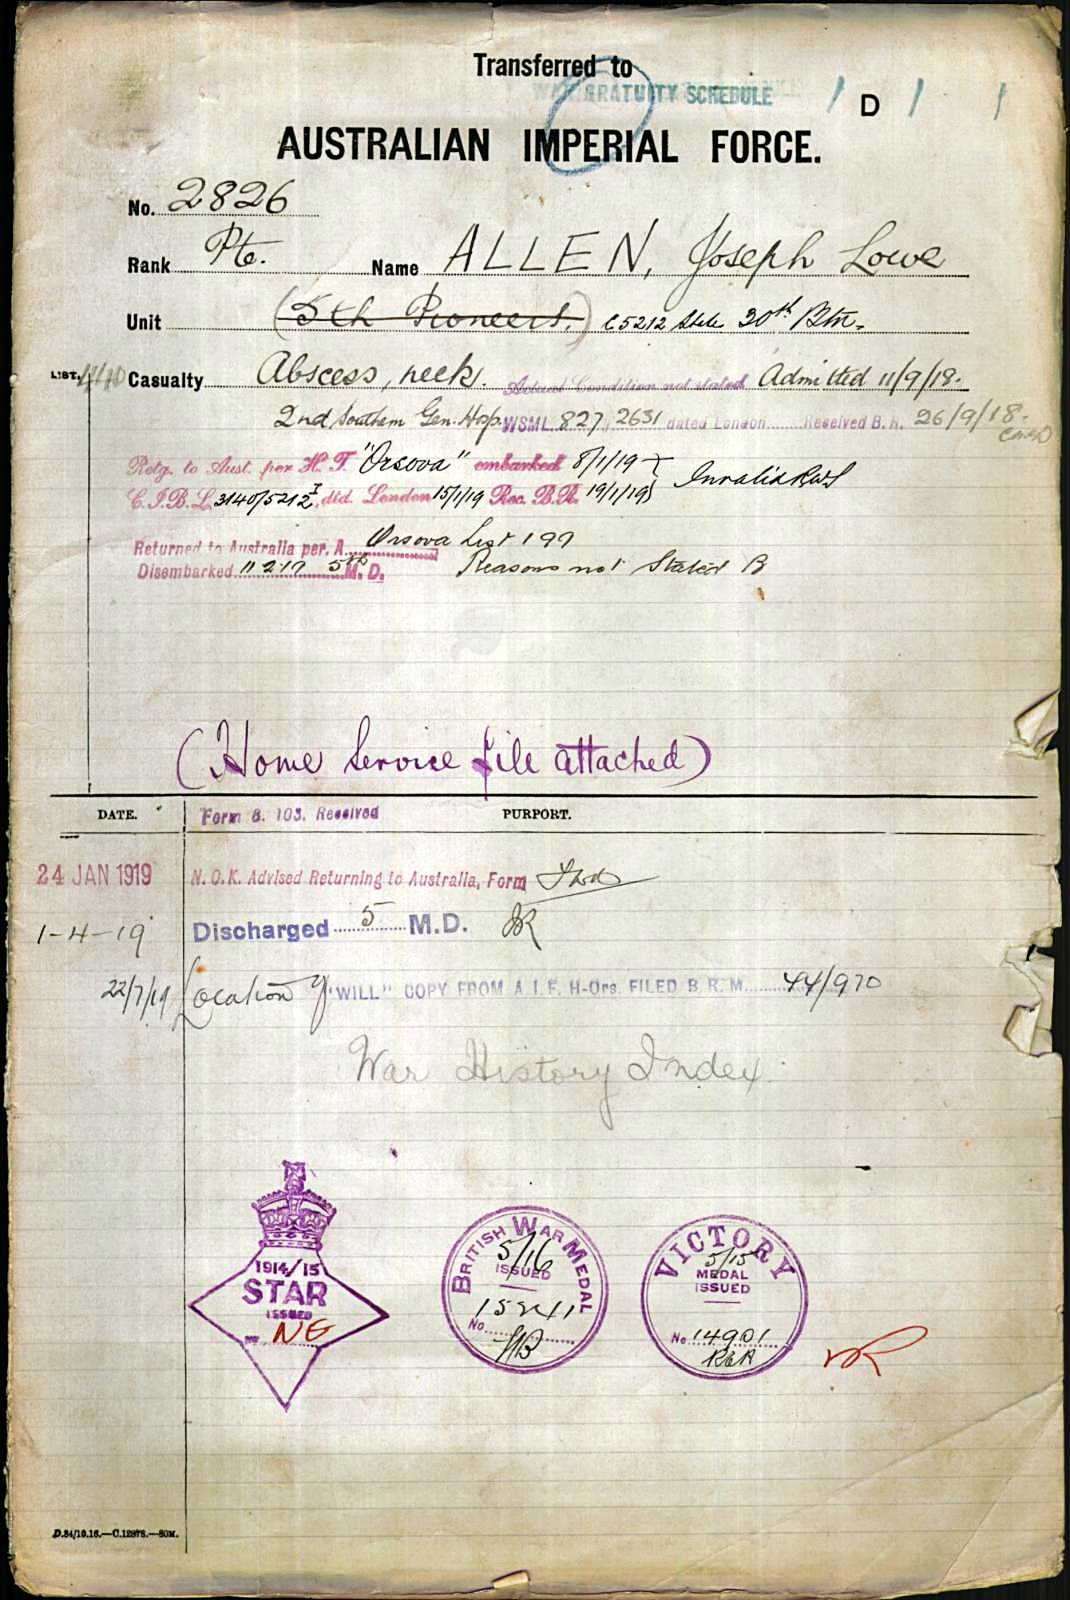 Transferred to
WAR GRATUITY SCHEDULE
D
AUSTRALIAN IMPERIAL FORCE.
No. 2826
Rank Pte. Name ALLEN, Joseph Lowe
Unit (5th Pioneers.) C5212 State 30th Btn.
LIST. Casualty Abscess, neck. Actual Condition not stated Admitted 11/9/18.
2nd Southern Gen. Hosp. WSML 827, 2631 dated London Received B.R. 26/9/18.
Retg. to Aust. per H.T. "Orsova" embarked 8/1/19 Invalid
C.I.B.L. 3140/5212 dtd. London 15/1/19 Rec. B.R. 19/1/19
Returned to Australia per. A Orsova List 199
Disembarked 11 2 19 5th M.D. Reasons not Stated B
(Home Service file attached)
DATE. Form B. 103. Received PURPORT.
24 JAN 1919 N.O.K. Advised Returning to Australia, Form
1-4-19 Discharged 5 M.D.
22/7/19 Location of "WILL" COPY FROM A.I.F. H-Qrs. FILED B.R.M. 44/970
War History Index.
1914/15 STAR ISSUED No. NE
BRITISH WAR MEDAL 5/16 ISSUED No. 15241
VICTORY 5/15 MEDAL ISSUED No. 14901
D.84/10.16.—C.12978.—80M.